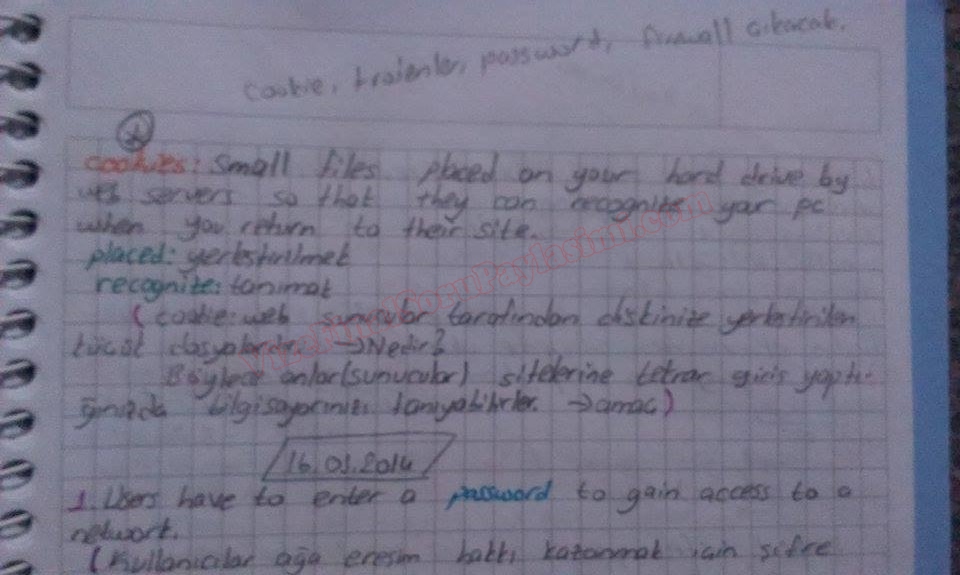 cookie, trojenler, password, firewall çıkacak.
cookies: Small files placed on your hard drive by
web servers so that they can recognize your pc
when you return to their site.
placed: yerleştirilmek
recognize: tanımak
(cookie: web sunucular tarafından diskinize yerleştirilen
küçük dosyalardır. →Nedir?
Böylece onlar(sunucular) sitelerine tekrar giriş yaptı-
ğınızda bilgisayarınızı tanıyabilirler. →amaç)
16.01.2014
1. Users have to enter a password to gain access to a
network.
(Kullanıcılar ağa erişim hakkı kazanmak için şifre